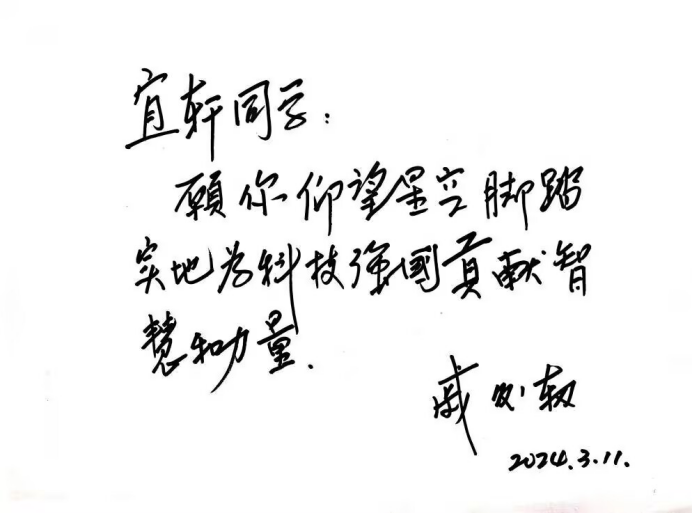 宜轩同学：
願你仰望星空脚踏
实地为科技强國贡献智
慧和力量.
戚发轫
2024.3.11.